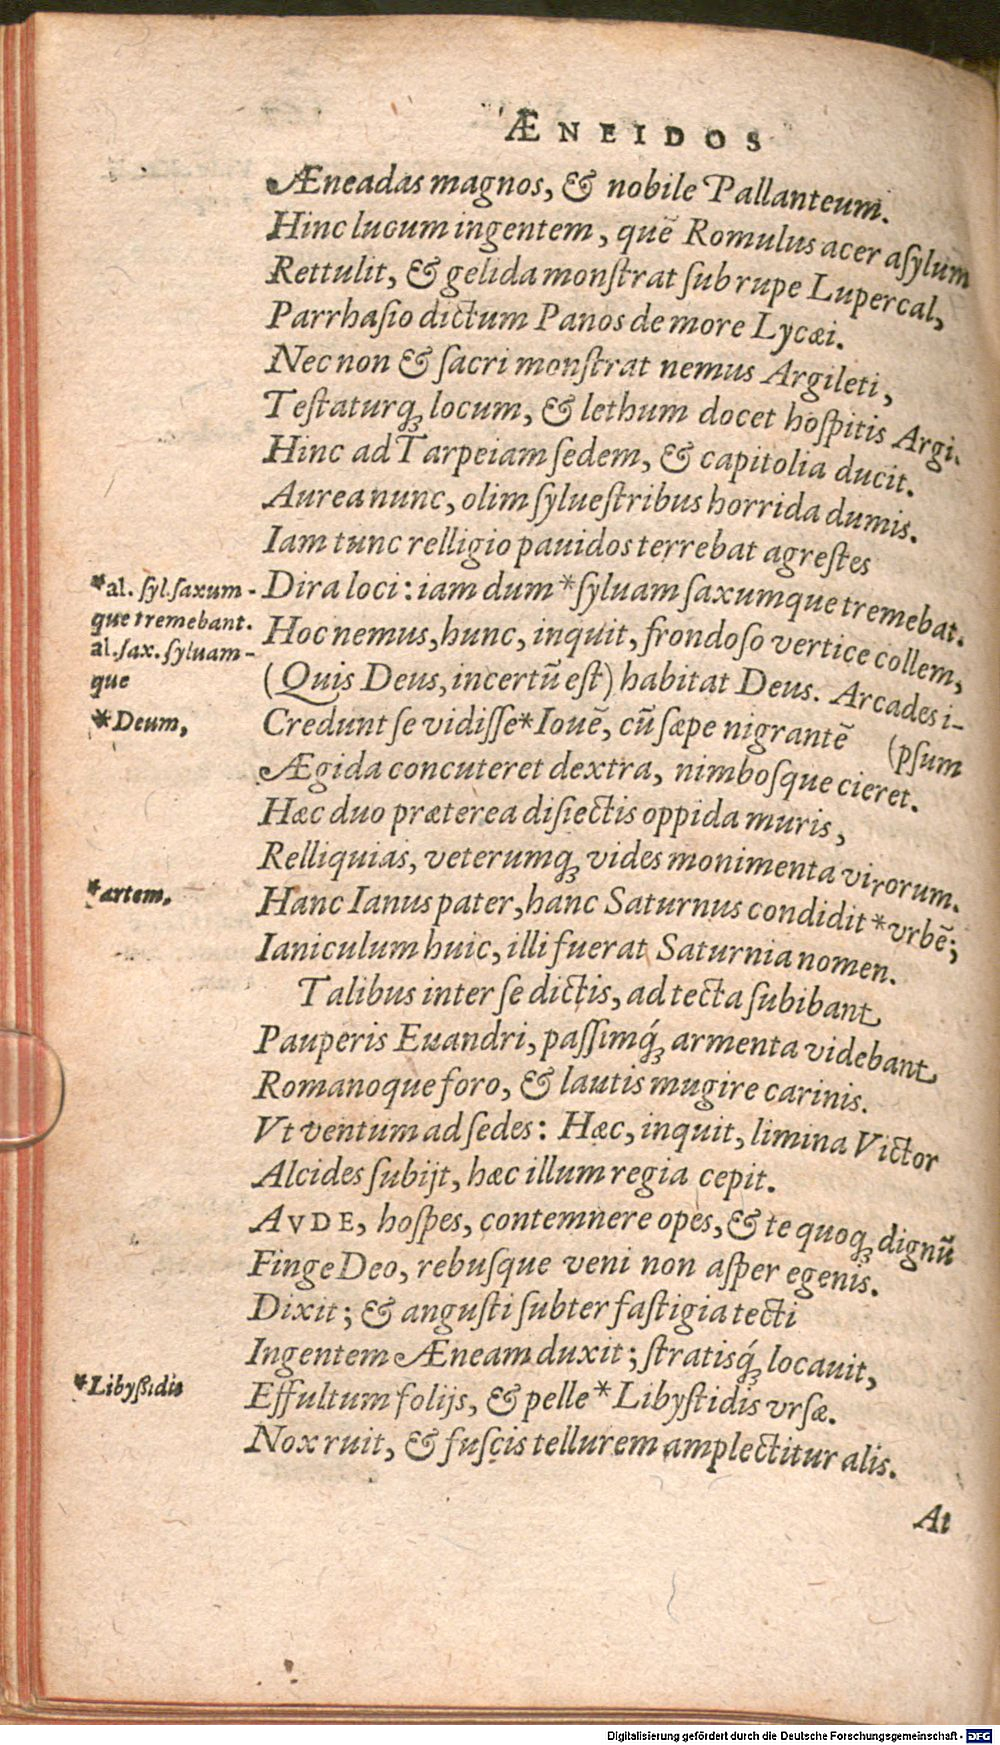 ÆNEIDOS
Æneadas magnos, & nobile Pallanteum.
Hinc lucum ingentem, quē Romulus acer asylum
Rettulit, & gelida monſtrat ſub rupe Lupercal,
Parrhaſio dictum Panos de more Lycæi.
Nec non & ſacri monſtrat nemus Argileti,
Teſtaturq́; locum, & lethum docet hoſpitis Argi.
Hinc ad Tarpeiam ſedem, & capitolia ducit.
Aurea nunc, olim ſylueſtribus horrida dumis.
Iam tunc relligio pauidos terrebat agreſtes
*al. ſyl. ſaxum-
que tremebant.
al. ſax. ſyluam-
que
Dira loci: iam dum *ſyluam ſaxumque tremebat.
Hoc nemus, hunc, inquit, frondoſo vertice collem,
(Quis Deus, incertū eſt) habitat Deus. Arcades i-
(pſum
*Deum,
Credunt ſe vidiſſe *Iouē, cū ſæpe nigrantē
Ægida concuteret dextra, nimboſque cieret.
Hæc duo præterea diſiectis oppida muris,
Relliquias, veterumq; vides monimenta virorum.
*artem.
Hanc Ianus pater, hanc Saturnus condidit *vrbē;
Ianiculum huic, illi fuerat Saturnia nomen.
Talibus inter ſe dictis, ad tecta ſubibant
Pauperis Euandri, paſſimq́; armenta videbant
Romanoque foro, & lautis mugire carinis.
Vt ventum ad ſedes: Hæc, inquit, limina Victor
Alcides ſubijt, hæc illum regia cepit.
AVDE, hoſpes, contemnere opes, & te quoq; dignū
Finge Deo, rebuſque veni non aſper egenis.
Dixit; & anguſti ſubter faſtigia tecti
Ingentem Æneam duxit; ſtratisq́; locauit,
*Libyßidis
Effultum folijs, & pelle *Libyſtidis vrſæ.
Nox ruit, & fuſcis tellurem amplectitur alis.
At
Digitalisierung gefördert durch die Deutsche Forschungsgemeinschaft - DFG